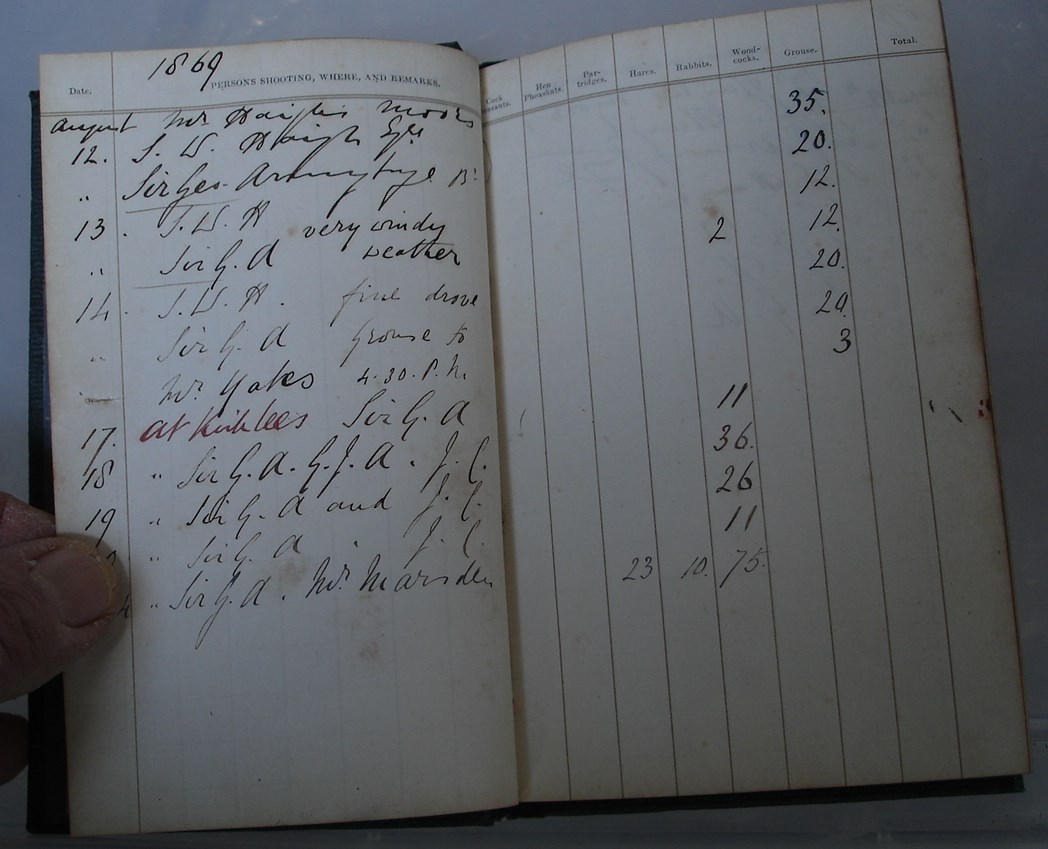 1869
Date. PERSONS SHOOTING, WHERE, AND REMARKS. Cock Hen Pheasants. Par-tridges. Hares. Rabbits. Wood-cocks. Grouse. Total.
August Mr Haigh's Moors
12. T. W. Haigh Esq 35.
" Sir Geo. Armytage Bt 20.
13. T. W. H very windy 12.
" Sir G. A weather 2 12.
14. T. W. H. fine drove 20.
" Sir G. A Grouse to 20.
" Mr. Yates 4.30. P. M. 3
17. at Kirklees Sir G. A 11
18 " Sir G. A. G. J. A. J. C. 36.
19 " Sir G. A and J. C. 26
" Sir G. A. J. C. 11
" Sir G. A. Mr. Marsden 23 10. 75.